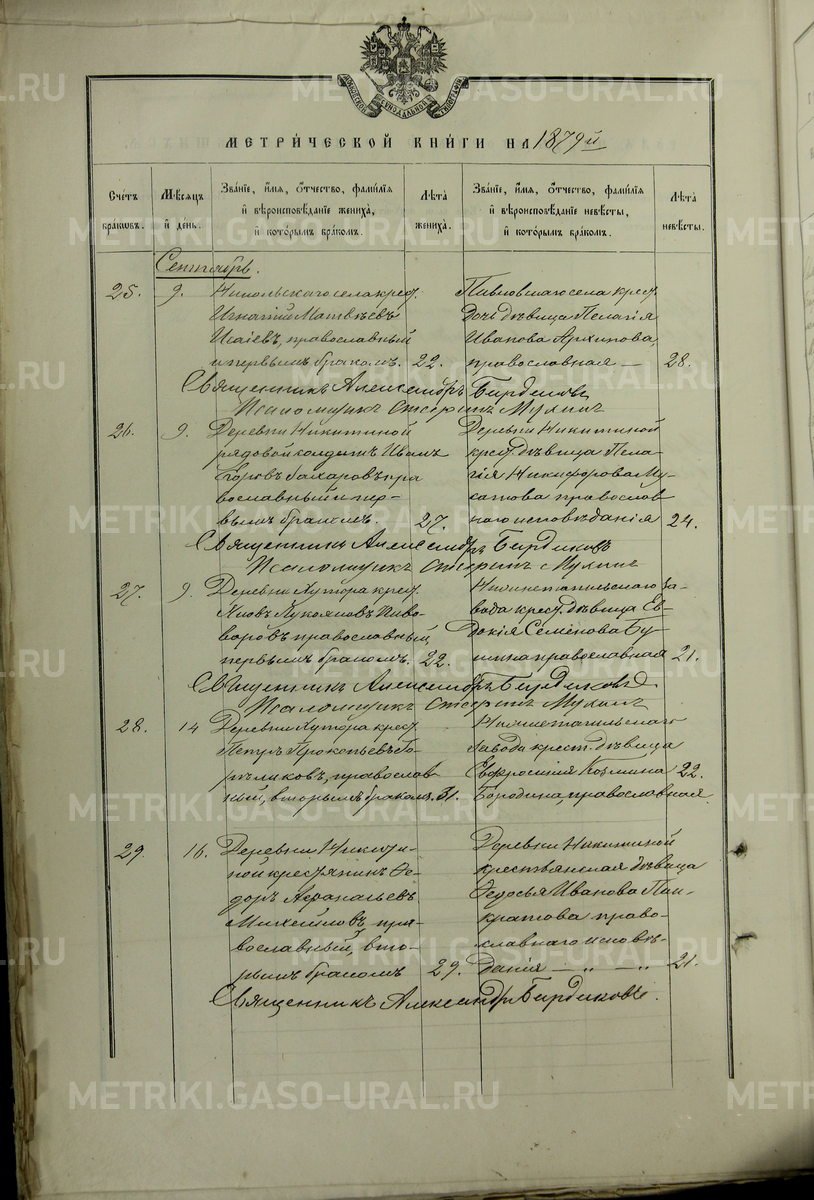 МЕТРИ́ЧЕСКОЙ КНИ́ГИ НА 1879й
Сче́тъ бра́ковъ.
Мѣ́сяцъ и҆ де́нь.
Зва́нїе, и҆́мя, ѻ҆́тчество, фами́лїя и҆ вѣроисповѣ́данїе жениха̀, и҆ кото́рымъ бра́комъ.
Лѣ́та жениха̀.
Зва́нїе, и҆́мя, ѻ҆́тчество, фами́лїя и҆ вѣроисповѣ́данїе невѣ́сты, и҆ кото́рымъ бра́комъ.
Лѣ́та невѣ́сты.
Сентябрь.
25.
9.
Никольскаго села крест.
Игнатій Матвѣевъ
Исаіевъ, православный
и первымъ бракомъ.
22.
Павловскаго села крест.
дочь дѣвица Пелагія
Иванова Архипова,
православная —
28.
Священникъ Александръ Бирдиковъ
Псаломщикъ Мухинъ
26.
9.
Деревни Никитиной
рядовой солдатъ Иванъ
Егоровъ Захаровъ пра
вославный и пер-
вымъ бракомъ.
27.
Деревни Никитиной
крест. дѣвица Пела-
гія Никифорова
православ
наго исповѣданія
24.
Священникъ Александръ Бирдиковъ
Псаломщикъ Мухинъ
27.
9.
Деревни Хутора крест.
Яковъ Лукояновъ Пиво-
варовъ православный,
первымъ бракомъ.
22.
Нижнетагильскаго За-
вода крест. дѣвица Ев-
докія Семенова
православная
21.
Священникъ Александръ Бирдиковъ
Псаломщикъ Мухинъ
28.
14
Деревни Хутора крест.
Петръ Прокопьевъ Го-
рѣликовъ, православ
ный, вторымъ бракомъ.
31.
Нижнетагильскаго
завода крест. дѣвица
Евфросинія Козмина
Бородина, православная.
22.
29.
16.
Деревни Никити-
ной крестьянинъ Ѳе-
доръ Аѳанасьевъ
Михайловъ пра-
вославный, вто-
рымъ бракомъ
29.
Деревни Никитиной
крестьянская дѣвица
Ѳедосья Иванова Пан-
кратова право-
славнаго исповѣ-
данія — „ — „
21.
Священникъ Александръ Бирдиковъ.
METRIKI.GASO-URAL.RU